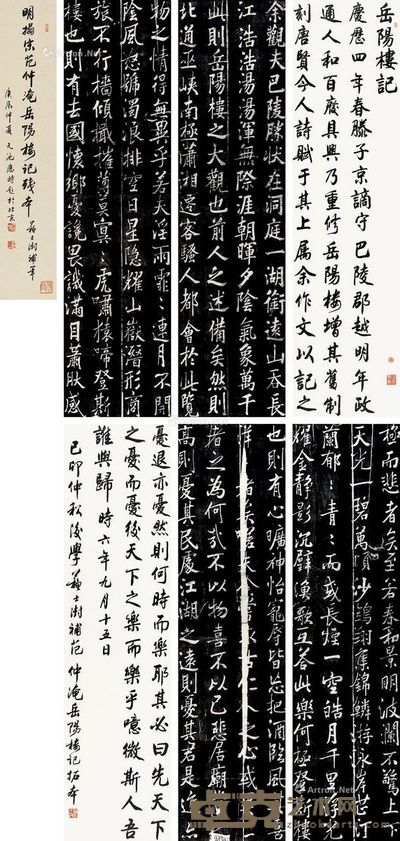 明搨宋范仲淹岳陽樓記殘本 蘇士澍補筆
岳陽樓記
慶歷四年春滕子京謫守巴陵郡越明年政
通人和百廢具興乃重修岳陽樓增其舊制
刻唐賢今人詩賦于其上屬余作文以記之
余觀夫巴陵勝狀在洞庭一湖銜遠山吞長
江浩浩湯湯橫無際涯朝暉夕陰氣象萬千
此則岳陽樓之大觀也前人之述備矣然則
北通巫峽南極瀟湘遷客騷人都會於此覽
物之情得無異乎若夫淫雨霏〻連月不開
陰風怒號濁浪排空日星隱耀山嶽潛形商
旅不行檣傾檝摧薄暮冥〻虎嘯猿啼登斯
樓也則有去國懷鄉憂讒畏譏滿目蕭然感
極而悲者矣至若春和景明波瀾不驚上下
天光一碧萬頃沙鷗翔集錦鱗游泳岸芷汀
蘭郁〻青〻而或長煙一空皓月千里浮光
耀金靜影沉璧漁歌互答此樂何極登斯樓
也則有心曠神怡寵辱皆忘把酒臨風其喜
洋〻者矣嗟夫余嘗求古仁人之心或異二
者之為何哉不以物喜不以己悲居廟堂之
高則憂其民處江湖之遠則憂其君是進亦
憂退亦憂然則何時而樂耶其必曰先天下
之憂而憂後天下之樂而樂乎噫微斯人吾
誰與歸 時六年九月十五日
己卯仲秋後學蘇士澍補范仲淹岳陽樓記拓本